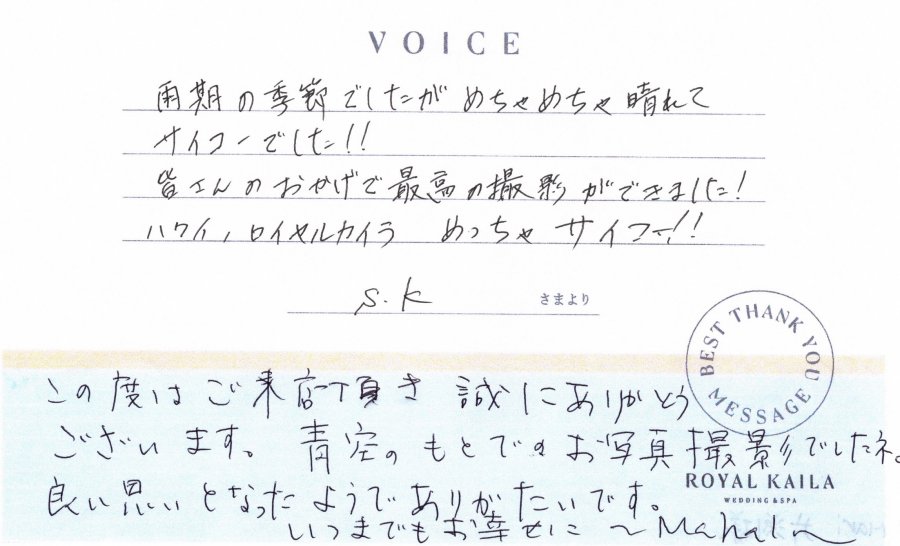 VOICE
雨期の季節でしたが めちゃめちゃ晴れて
サイコーでした!!
皆さんのおかげで最高の撮影ができました!
ハワイ、ロイヤルカイラ めっちゃ サイコー!!
S.K さまより
BEST THANK YOU MESSAGE
この度はご来店頂き 誠にありがとう
ございます。 青空のもとでのお写真撮影でしたネ。
ROYAL KAILA
WEDDING & SPA
良い思いとなったようでありがたいです。
いつまでもお幸せに ~Mahalo~